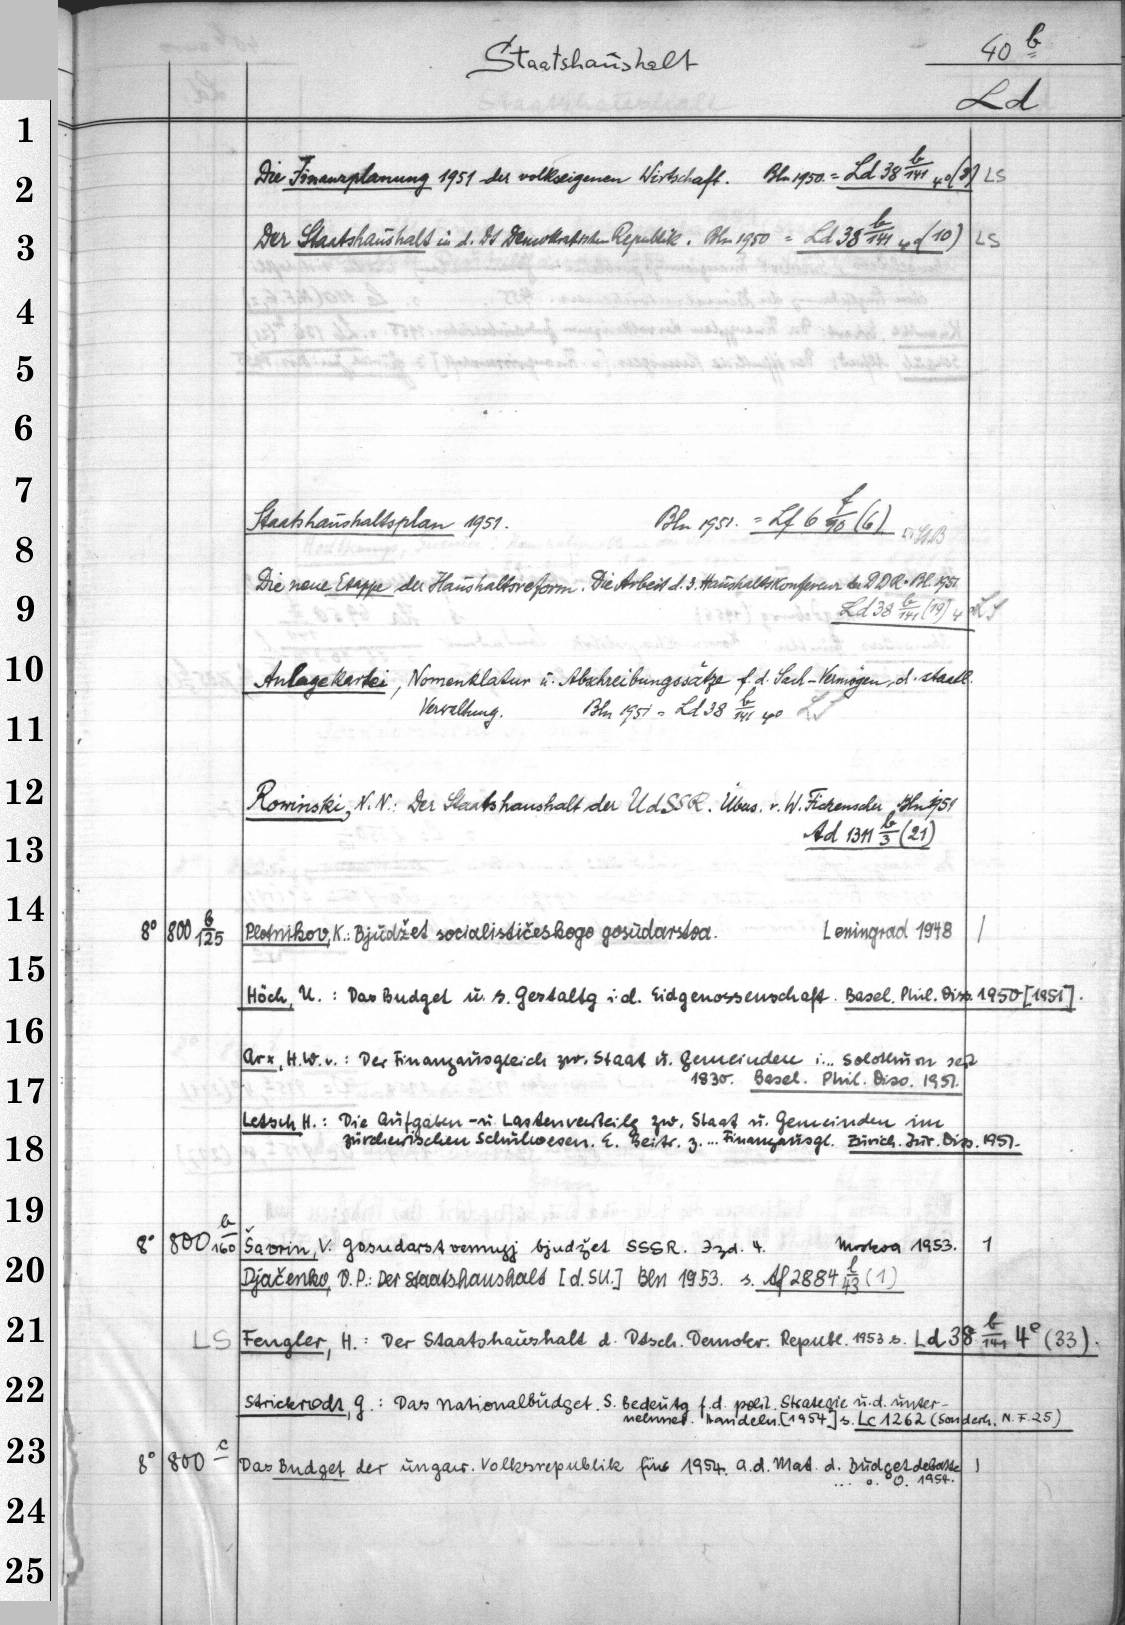 Staatshaushalt
40 b
Ld
1
2
3
4
5
6
7
8
9
10
11
12
13
14
15
16
17
18
19
20
21
22
23
24
25
Die Finanzplanung 1951 der volkseigenen Wirtschaft. Bln 1950. = Ld 38 b/141 4° (9) LS
Der Staatshaushalt in d. Dt Demokratischen Republik. Bln 1950 = Ld 38 b/141 4° (10) LS
Staatshaushaltsplan 1951. Bln 1951. = Lf 6 f/90 (6)
Die neue Etappe der Haushaltsreform. Die Arbeit d. 3. Haushaltskonferenz der DDR. Bl. 1951
Ld 38 b/141 (19) 4° LS
Anlagekartei, Nomenklatur u. Abschreibungssätze f. d. Sach-Vermögen, d. staatl.
Verwaltung. Bln 1951 = Ld 38 b/141 4° LS
Rowinski, N.N.: Der Staatshaushalt der UdSSR. Übers. v. W. Fickenscher Bln 1951
Ad 1311 b/3 (21)
8° 800 b/125 Plotnikov, K.: Bjudžet socialističeskogo gosudarstva. Leningrad 1948 |
Höch, U. : Das Budget u. s. Gestaltg i. d. Eidgenossenschaft. Basel. Phil. Diss. 1950 [1951].
Arx, H.W. v. : Der Finanzausgleich zw. Staat u. Gemeinden i... Solothurn seit
1830. Basel. Phil. Diss. 1951.
Letsch H. : Die Aufgaben- u. Lastenverteilg zw. Staat u. Gemeinden im
zürcherischen Schulwesen. E. Beitr. z. ... Finanzausgl. Zürich. Jur. Diss. 1951.
8° 800 b/160 Šavrin, V. Gosudarstvennyj bjudžet SSSR. Izd. 4. Moskva 1953. 1
Djačenko, V. P.: Der Staatshaushalt [d. SU.] Bln 1953. s. Af 2884 b/43 (1)
LS Fengler, H. : Der Staatshaushalt d. Dtsch. Demokr. Republ. 1953 s. Ld 38 b/141 4° (33).
Strickrodt, G. : Das Nationalbudget. S. Bedeutg f. d. polit. Strategie u. d. unter-
nehmer. Handeln. [1954] s. Lc 1262 (Sonderh. N. F. 25)
8° 800 c Das Budget der ungar. Volksrepublik fürs 1954. A. d. Mat. d. Budgetdebatte 1
... o. O. 1954.